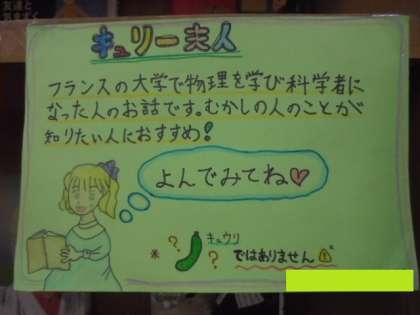 キュリー夫人
フランスの大学で物理を学び科学者に
なった人のお話です。むかしの人のことが
知りたい人におすすめ!
よんでみてね♡
※ ? キュウリ ? ではありません